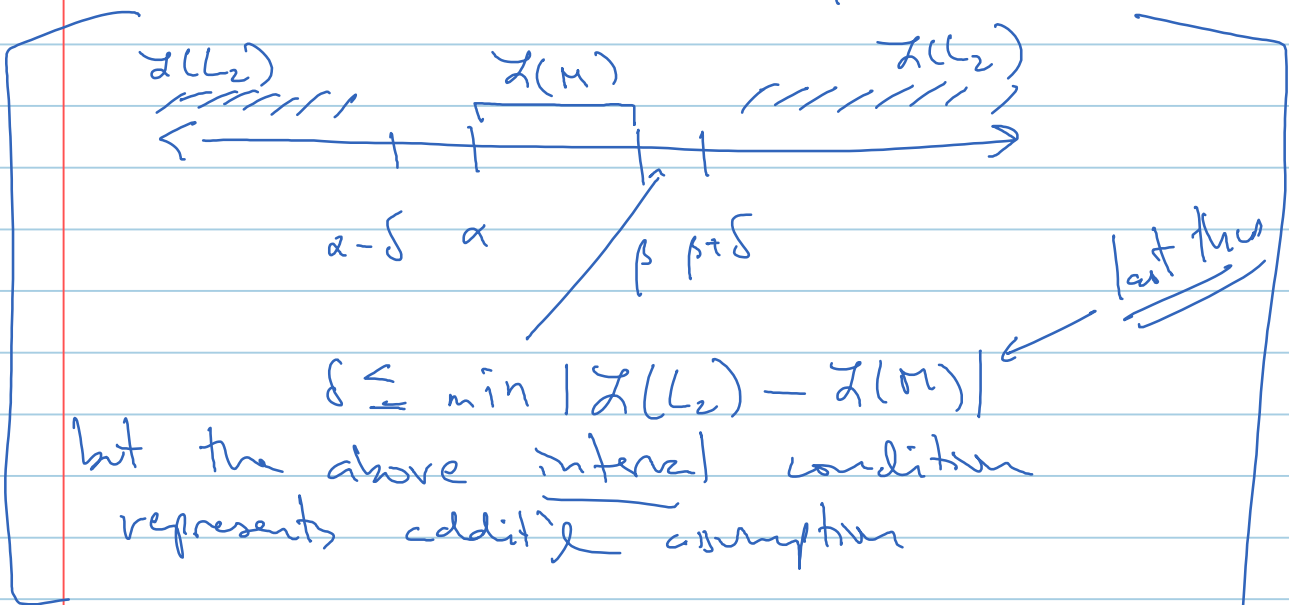 ℒ(L₂) ℒ(M) ℒ(L₂)
α-δ α β β+δ
last thm
δ ≤ min |ℒ(L₂) - ℒ(M)|
but the above interval condition
represents addit'l assumption